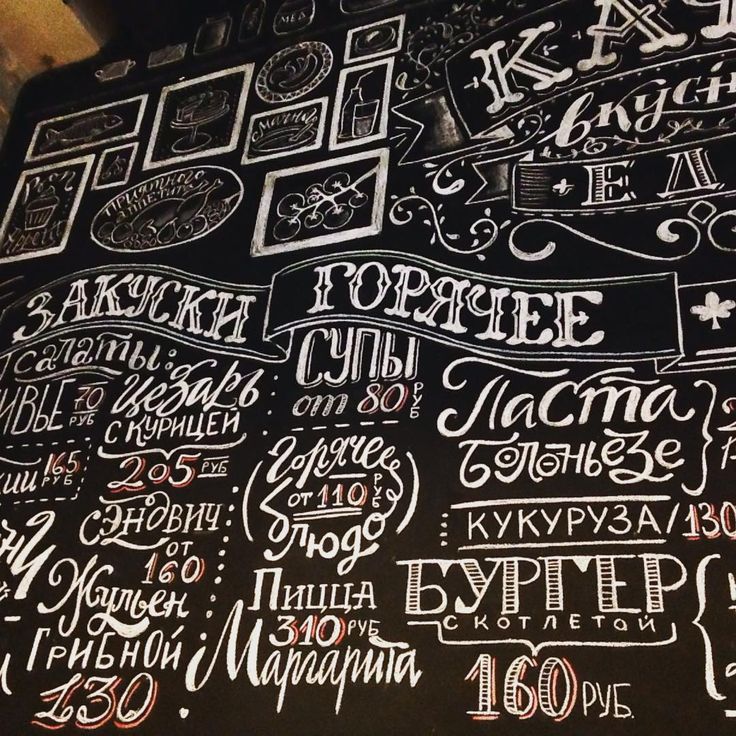 МЁД
СМАЧНО
ПРИЯТНОГО
АППЕТИТА
вкусн
ЕД
ЗАКУСКИ
САЛАТЫ:
ИВЬЕ 70 РУБ
ЦЕЗАРЬ
С КУРИЦЕЙ
205 РУБ
165 РУБ
СЭНДВИЧ
ОТ
160
Жульен
ГРИБНОЙ
130
ГОРЯЧЕЕ
СУПЫ
от 80 РУБ
Горячее
ОТ 110 РУБ
блюдо
ПИЦЦА
310 РУБ
Маргарита
Паста
Болоньезе
КУКУРУЗА/130
БУРГЕР
С КОТЛЕТОЙ
160 РУБ.